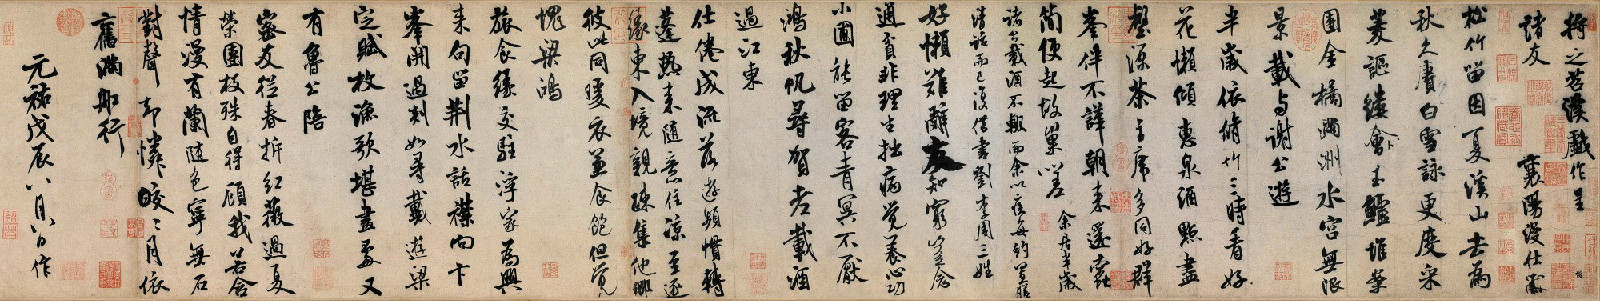 將之苕溪戲作呈
諸友　襄陽漫仕黻
松竹留因夏溪山去為
秋久賡白雪詠更度采
菱謳縷會卜玉鱸堆案
團金橘滿洲水宮無限
景載與謝公遊
半歲依修竹三時看好
花懶傾惠泉酒點盡
壑源茶主席多同好群
峯伴不譁朝來還蠹
簡便起故巢嗟 余居半歲
諸公載酒不輟而余以疾每約置膳
清話而已復借書劉李周三姓
好懶難辭友知窮豈念
通貧非理生拙病覺養心功
小圃能留客青冥不厭
鴻秋帆尋賀老載酒
過江東
仕倦成流落遊頻慣轉
蓬熱來隨意住涼至逐
緣東入境親疎集他鄉
彼此同暖衣兼食飽但覺
愧梁鴻
旅食緣交駐浮家為興
來句留荊水話襟向卞
峯開過剡如尋戴遊梁
定賦枚漁歌堪畫處又
有魯公陪
密友從春拆紅薇過夏
榮團枝殊自得顧我若含
情漫有蘭隨色寧無石
對聲卻憐皎々月依
舊滿船行
元祐戊辰八月八日作